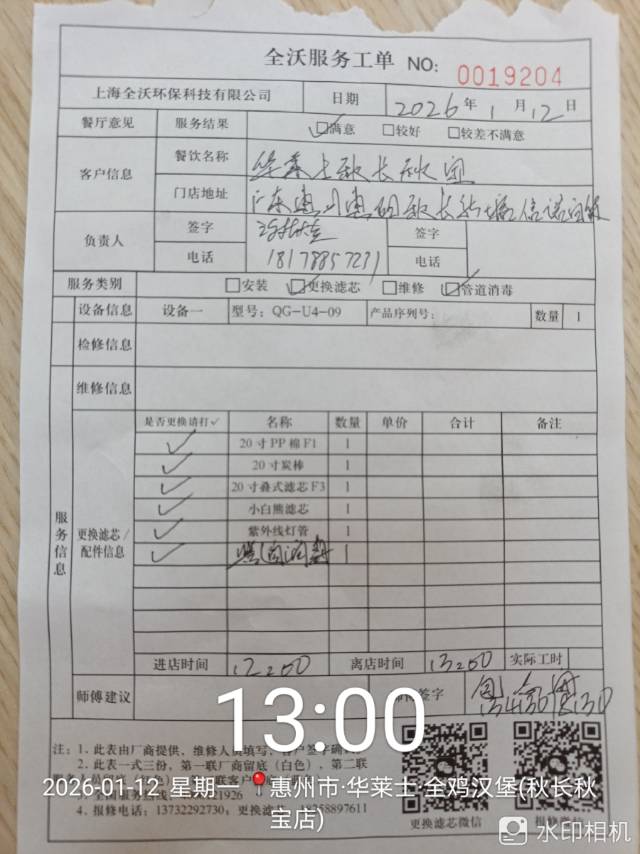 全沃服务工单 NO: 0019204
上海全沃环保科技有限公司 日期 2026年1月12日
餐厅意见 服务结果 ☑满意 □较好 □较差不满意
客户信息 餐饮名称 华莱士秋长秋宝
门店地址 广东惠州惠阳秋长
负责人 签字 签字
电话 18178857231 电话
服务类别 □安装 ☑更换滤芯 □维修 ☑管道消毒
设备信息 设备一 型号：QG-U4-09 产品序列号： 数量 1
检修信息
维修信息
服务信息
更换滤芯/配件信息
是否更换请打✓ 名称 数量 单价 合计 备注
✓ 20寸PP棉F1 1
✓ 20寸炭棒 1
✓ 20寸叠式滤芯F3 1
✓ 小白熊滤芯 1
✓ 紫外线灯管 1
✓ 1
进店时间 12:00 离店时间 13:00 实际工时
师傅建议 签字
注：1. 此表由厂商提供，维修人员填写，客户签字确
2. 此表一式三份，第一联厂商留底（白色），第二联
4. 报修电话：13732292730，更换滤 18258897611
更换滤芯微信 报修微信
13:00
2026-01-12 星期一 惠州市·华莱士·全鸡汉堡(秋长秋宝店)
水印相机